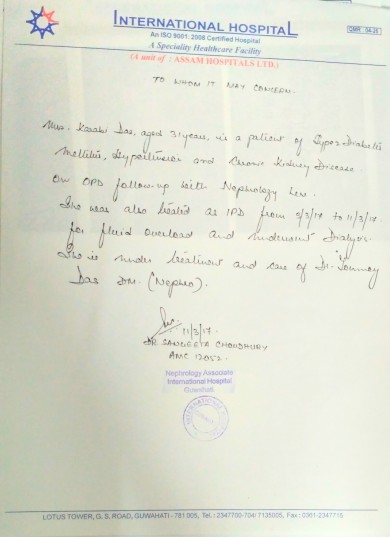 INTERNATIONAL HOSPITAL
An ISO 9001: 2008 Certified Hospital
A Speciality Healthcare Facility
(A unit of : ASSAM HOSPITALS LTD.)
QMR : 04-20
TO WHOM IT MAY CONCERN.
Mrs. Das, aged 31 years, is a patient of Type 2 Diabetes
Mellitus, Hypertension and Chronic Kidney Disease.
On OPD follow-up with Nephrology here.
She was also treated as IPD from 5/3/17 to 11/3/17.
for fluid overload and underwent Dialysis.
She is under treatment and care of Dr.
Das DM. (Nephro).
11/3/17.
DR SANGEETA CHOUDHURY
AMC 12052.
Nephrology Associate
International Hospital
Guwahati
LOTUS TOWER, G. S. ROAD, GUWAHATI - 781 005, Tel. : 2347700-704/ 7135005, Fax : 0361-2347715